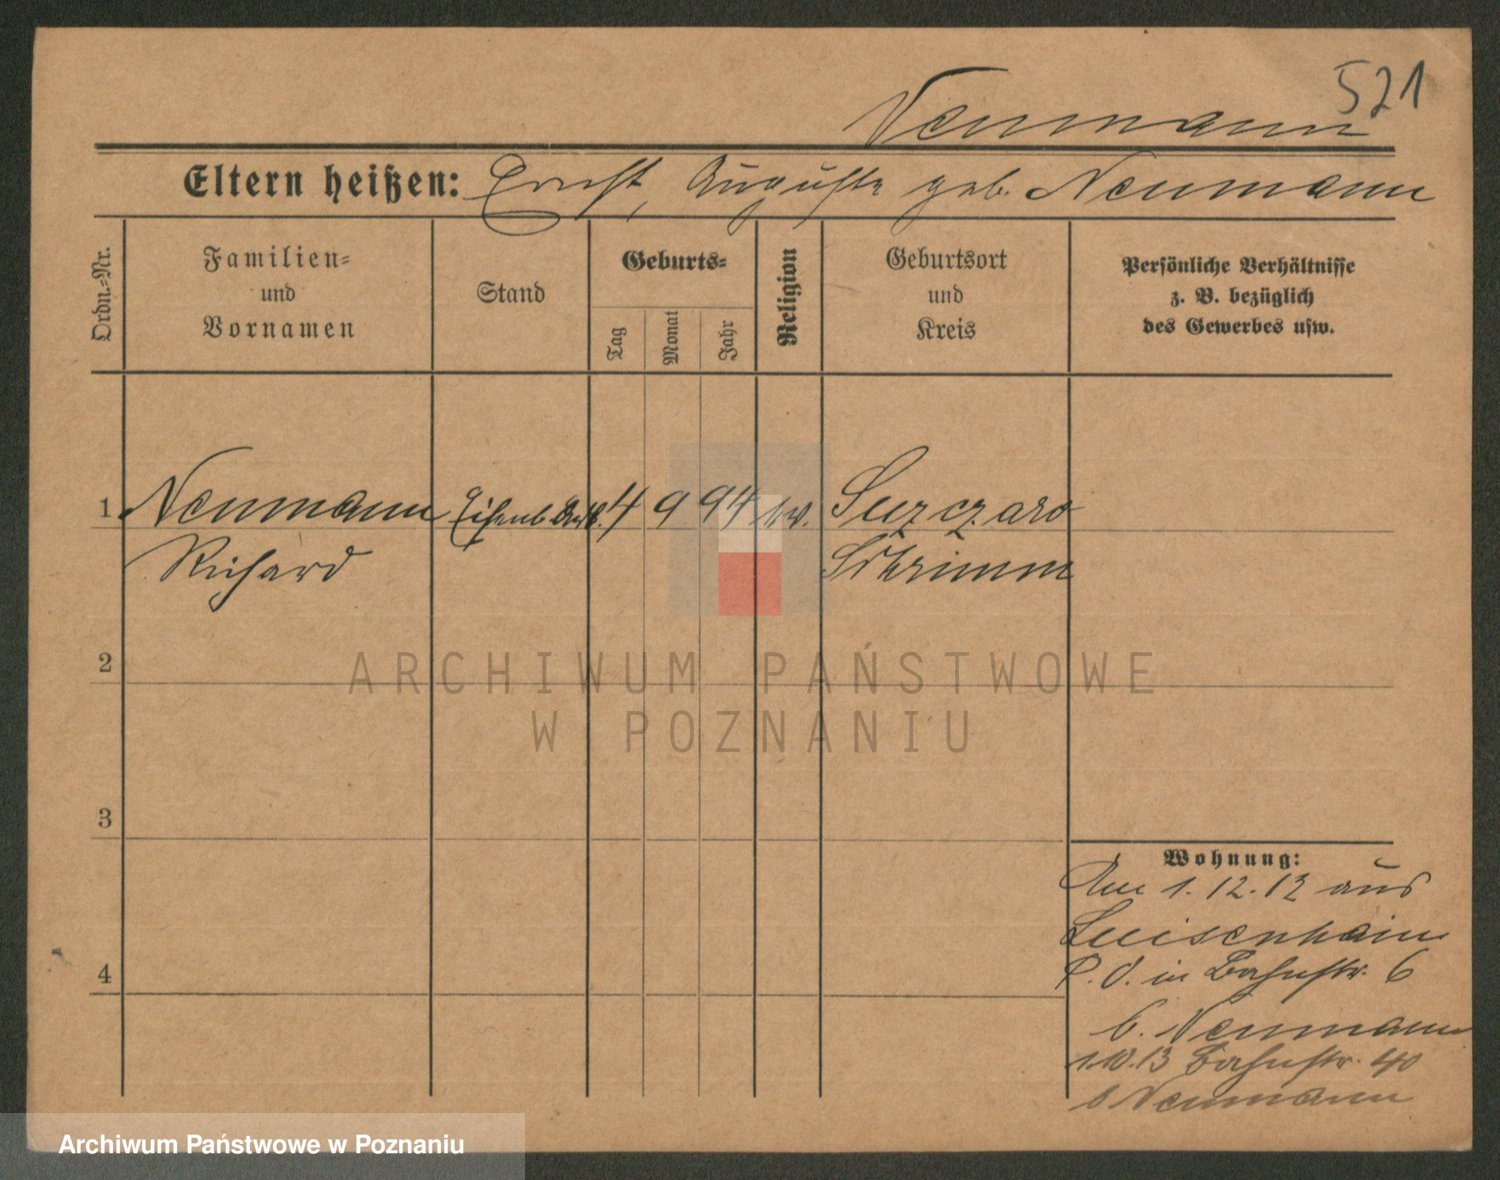 521
Neumann
Eltern heißen: Ernst, Auguste geb. Neumann
Ordn.-Nr.
Familien-
und
Vornamen
Stand
Geburts-
Tag
Monat
Jahr
Religion
Geburtsort
und
Kreis
Persönliche Verhältnisse
z. B. bezüglich
des Gewerbes usw.
1 Neumann 4 9 94
Richard Schrimm
2
3
4
Wohnung:
Am 1.12.12 aus
Luisenhain
P. O. in Bahnstr. 6
b. Neumann
1.10.13 Bahnstr. 40
b Neumann
ARCHIWUM PAŃSTWOWE
W POZNANIU
Archiwum Państwowe w Poznaniu